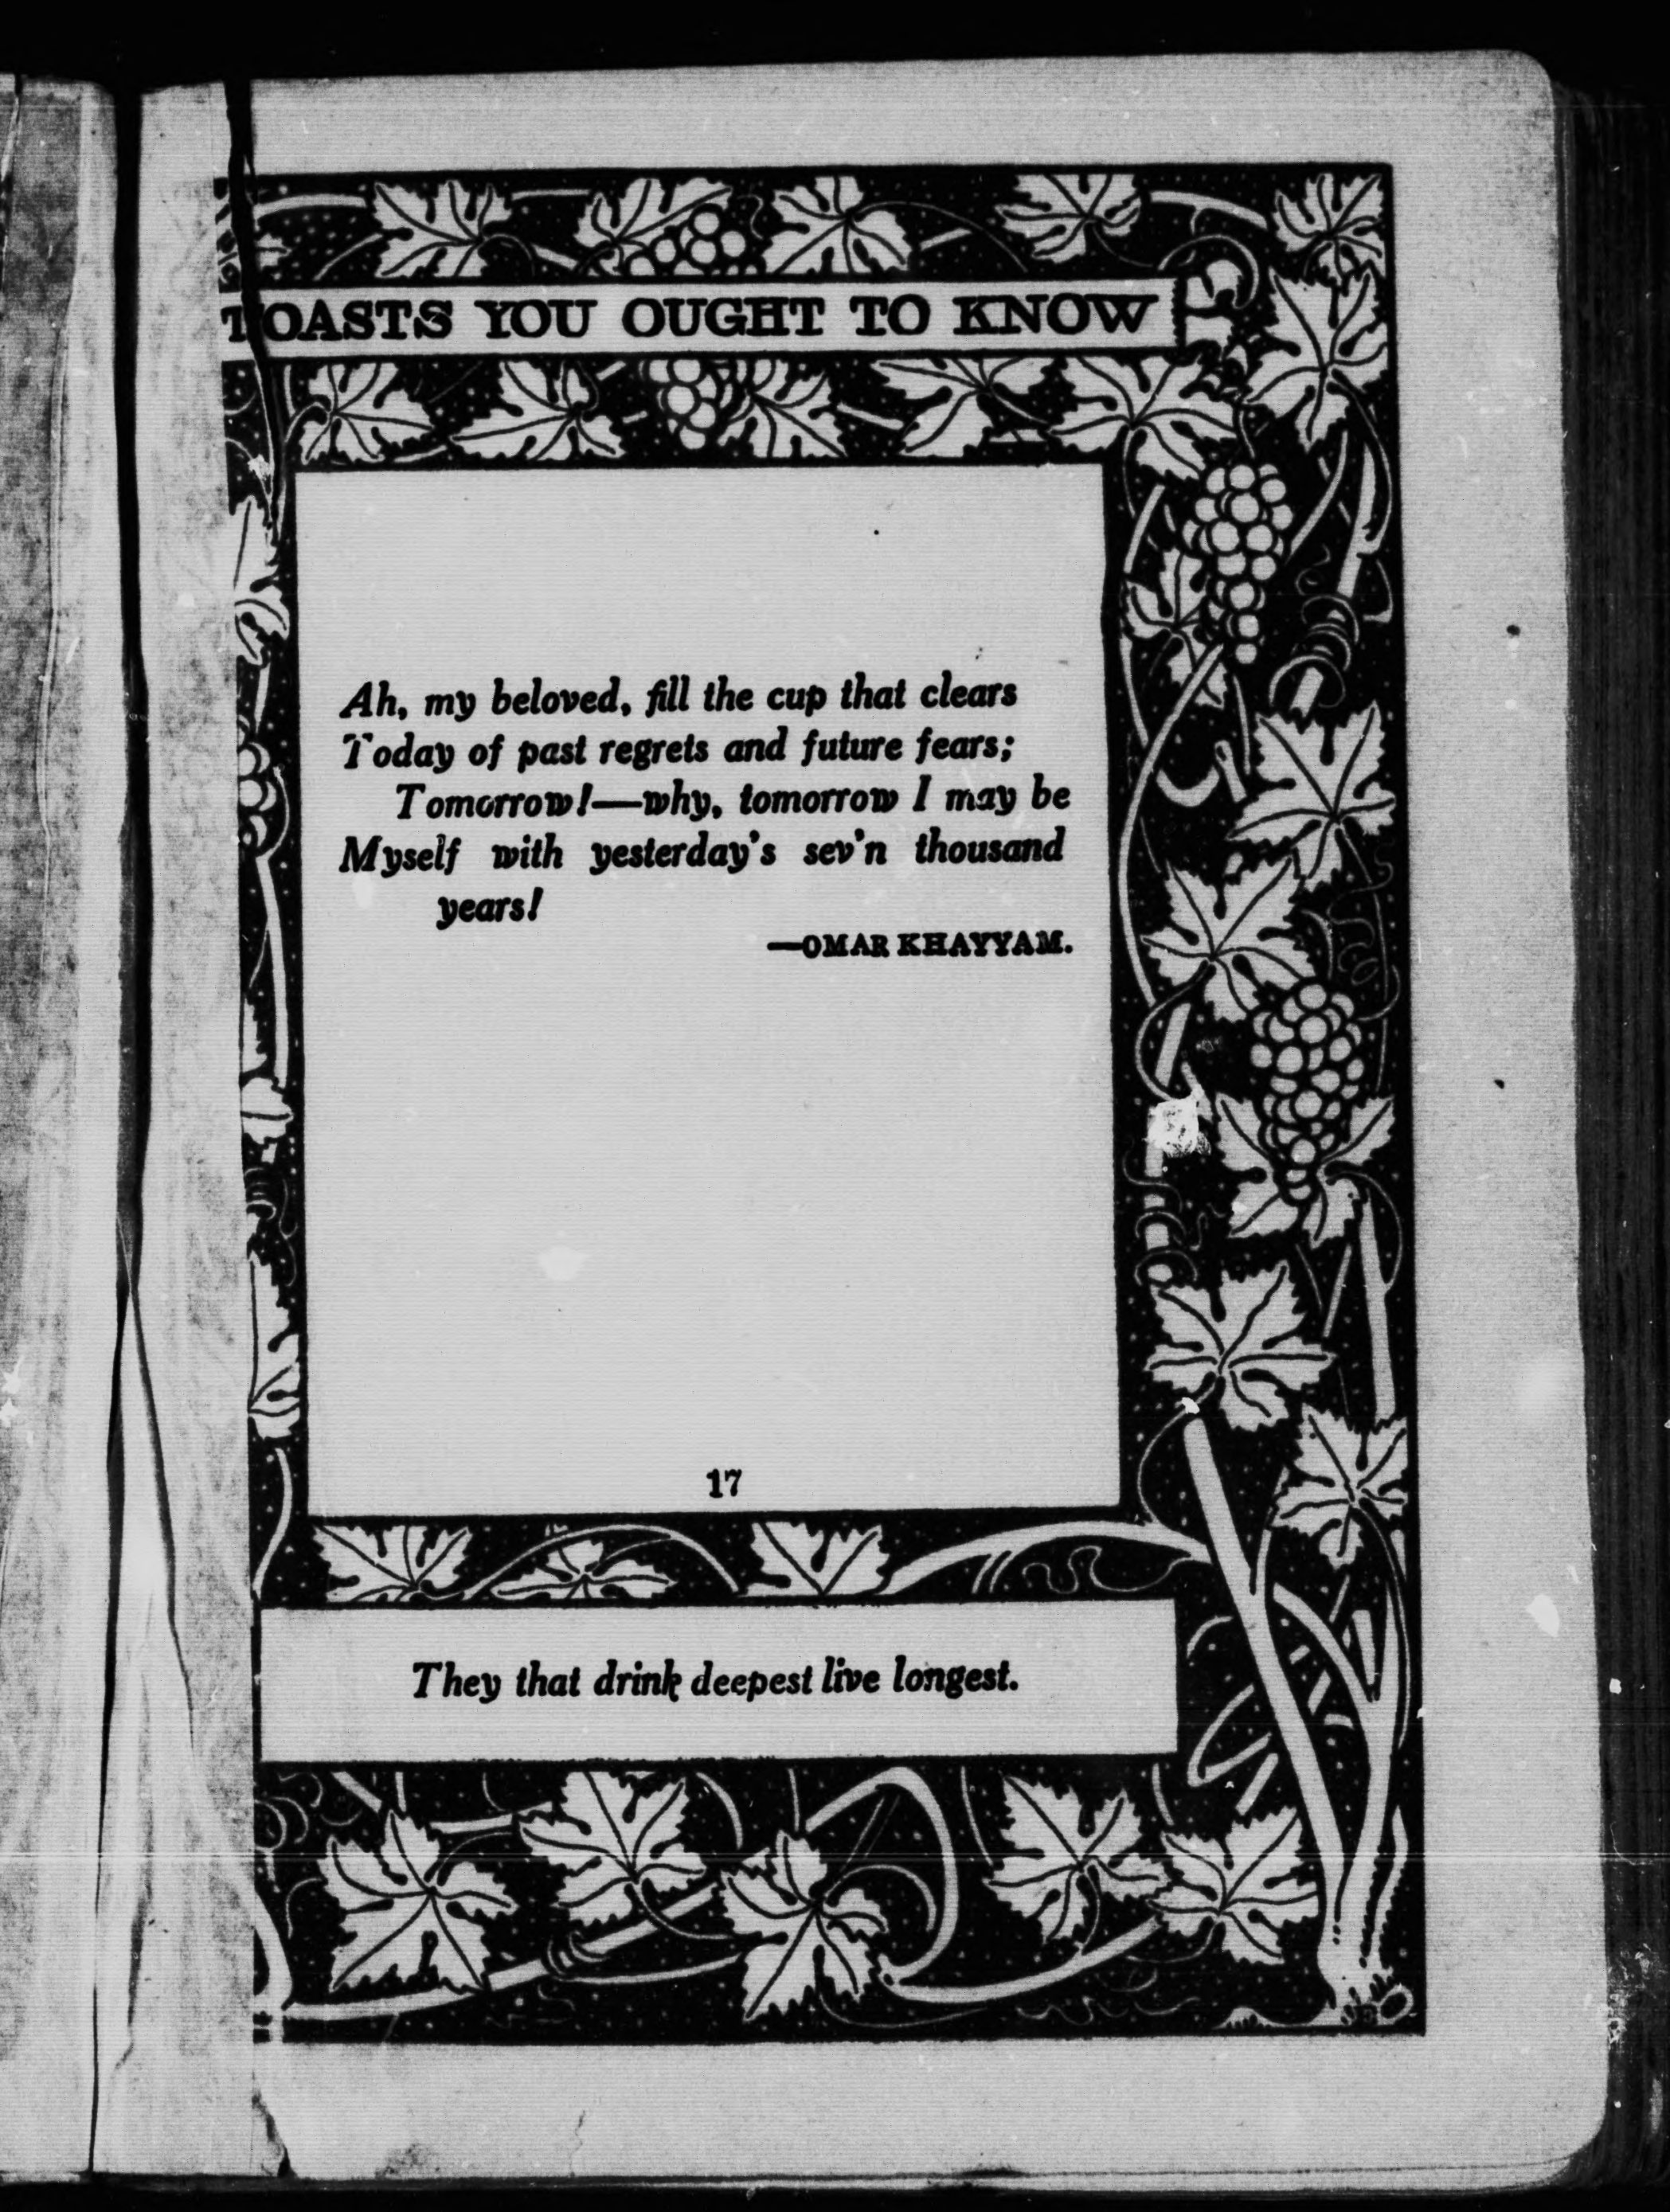 TOASTS YOU OUGHT TO KNOW
Ah, my beloved, fill the cup that clears
Today of past regrets and future fears;
Tomorrow!—why, tomorrow I may be
Myself with yesterday's sev'n thousand
years!
—OMAR KHAYYAM.
17
They that drink deepest live longest.